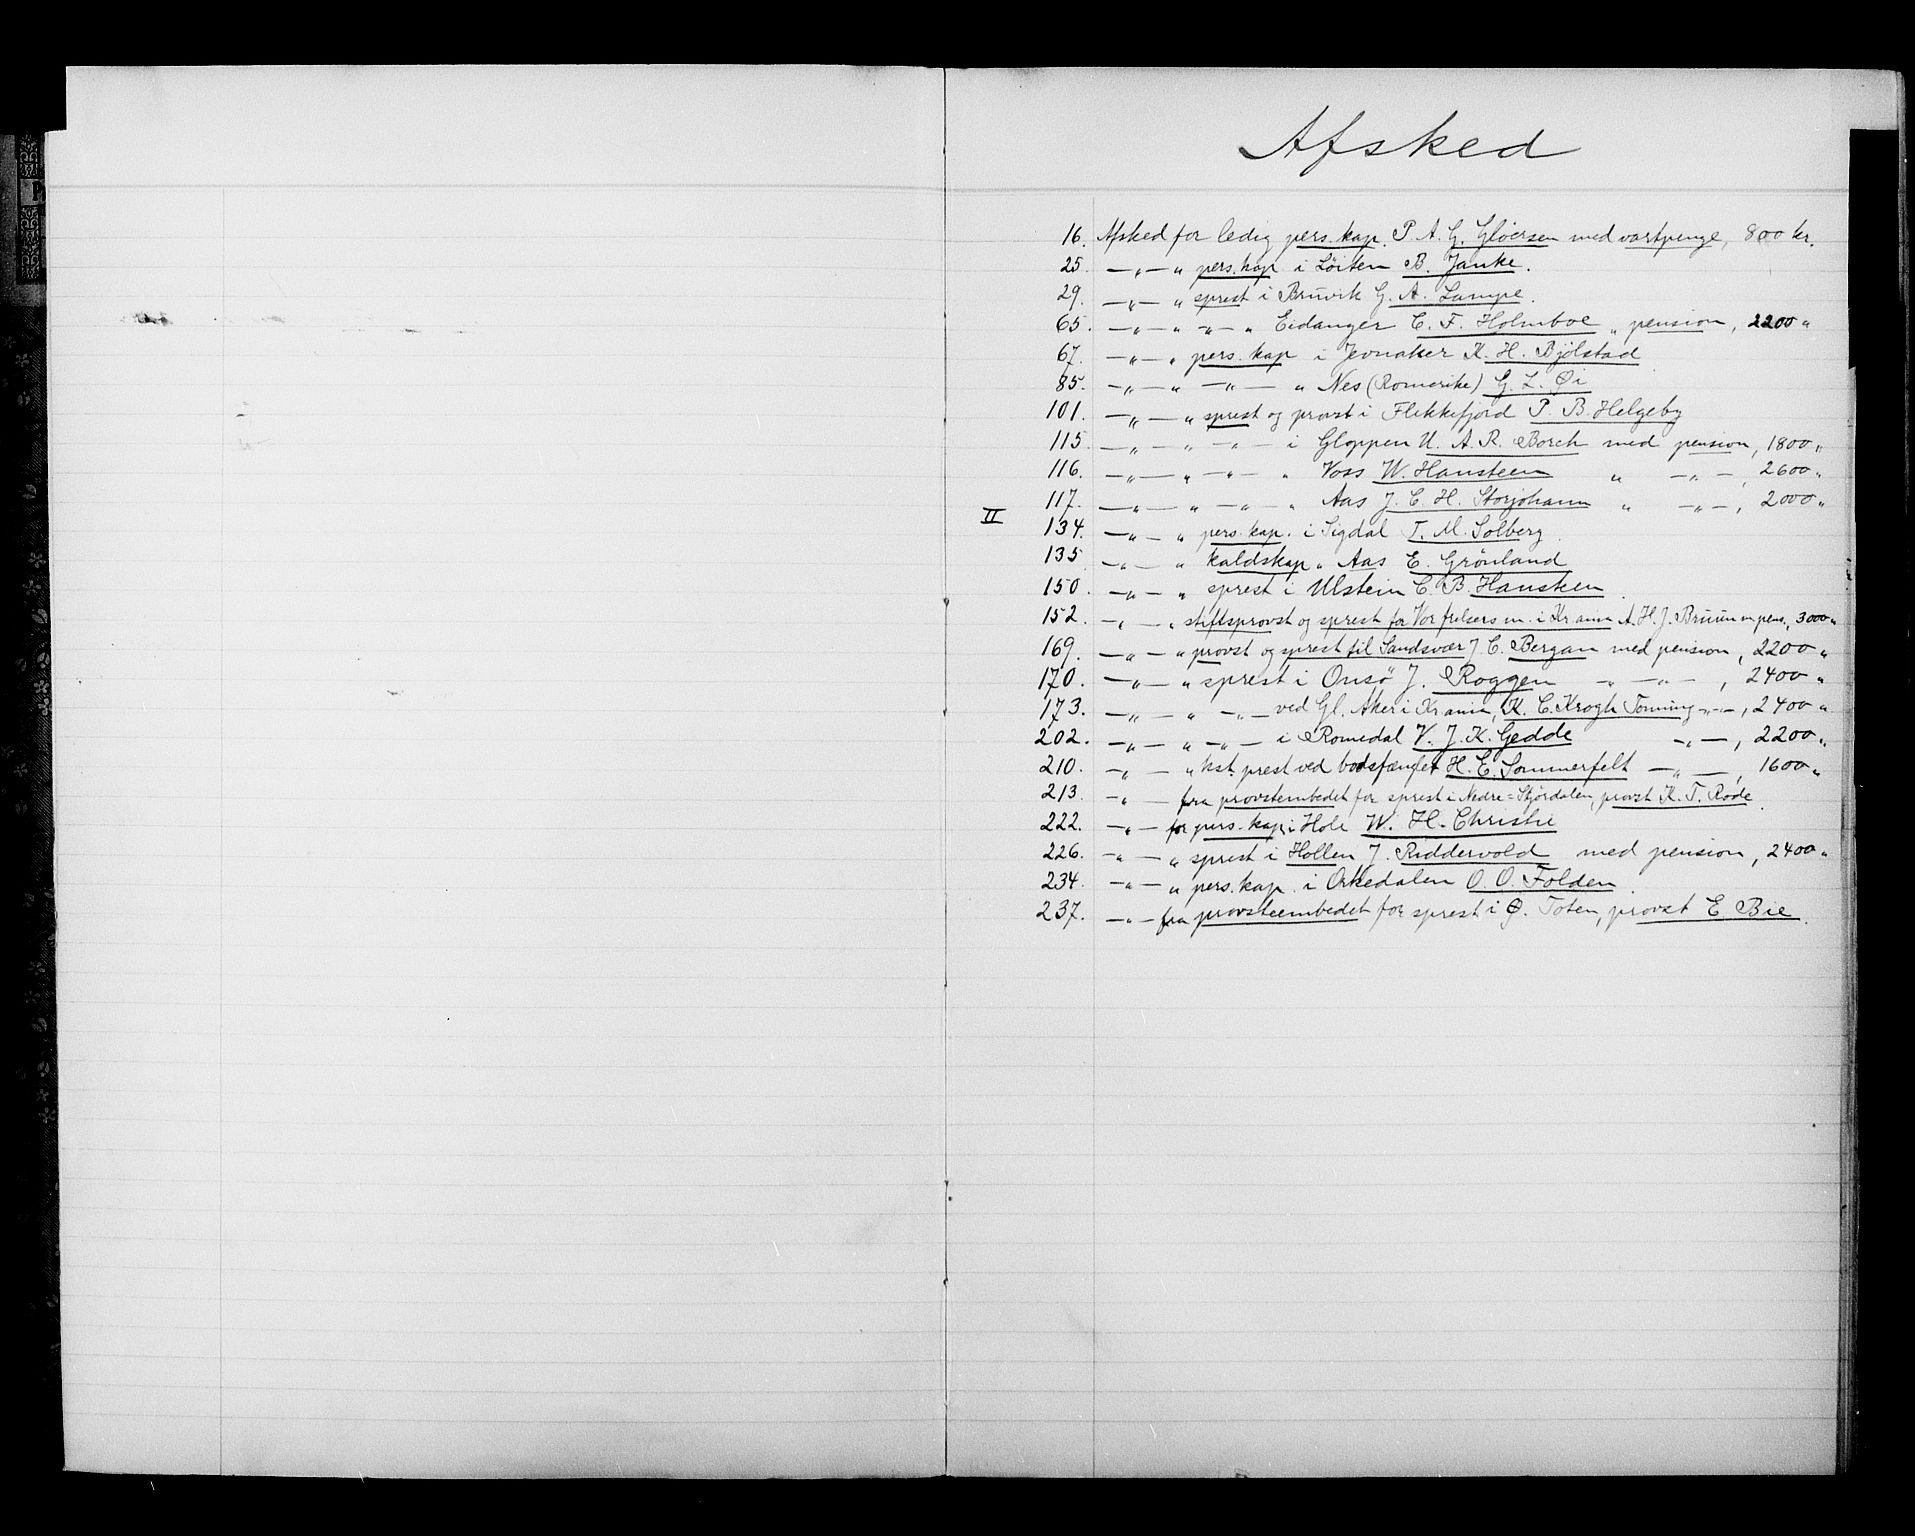 Afsked
16. Afsked for ledig pers. kap. P. A. G. Gløersen med vartpenge, 800 kr.
25. —„— „ pers. kap i Løiten B. Janke.
29. —„— „ sprest i Bruvik G. A. Lampe.
65. —„— „ —„— „ Eidanger C. F. Holmboe „ pension, 2200 „
67. —„— „ pers. kap i Jevnaker K. H. Bjølstad
85. —„— „ —„— „ Nes (Romerike) G. L. Øi
101. —„— „ sprest og provst i Flekkefjord P. B. Helgeby
115. —„— „ —„— i Gloppen U. A. R. Borch med pension, 1800 „
116. —„— „ —„— „ Voss W. Hansteen „ —„—, 2600 „
117. —„— „ —„— „ Aas J. C. H. Storjohann „ —„—, 2000 „
II 134. —„— „ pers. kap. i Sigdal T. M. Solberg.
135 —„— „ kaldskap „ Aas E. Grønland
150. —„— „ sprest i Ulstein C. B. Hansteen.
152. —„— „ stiftsprovst og sprest for Vor frelsers m. i Krania A. H. J. Bruun m pens., 3000 „
169. —„— „ provst og sprest til Sandsvær J. C. Bergan med pension, 2200 „
170. —„— „ sprest i Onsø J. Roggen „ —„—, 2400 „
173. —„— „ —„— ved Gl. Aker i Krania, K. C. Krogh Tonning —„—, 2400 „
202. —„— „ —„— i Romedal V. J. K. Gedde —„—, 2200 „
210. —„— „ kst. prest ved bodsfænglet H. E. Sommerfelt —„—, 1600 „
213. —„— fra provstembedet for sprest i Nedre=Stjørdalen, provst K. T. Rode.
222. —„— for pers. kap. i Hole W. H. Christie
226. —„— „ sprest i Hollen J. Riddervold med pension, 2400 „
234. —„— „ pers. kap. i Orkedalen O. O. Folden.
237. —„— fra provsteembedet for sprest i Ø. Toten, provst E. Bie.